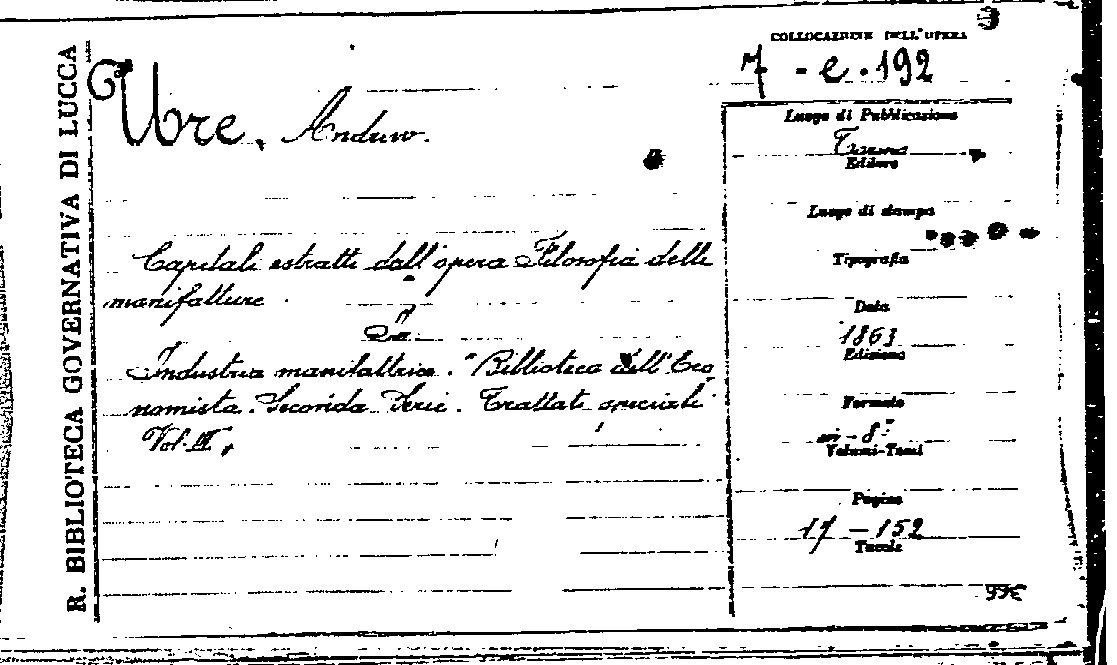 R. BIBLIOTECA GOVERNATIVA DI LUCCA
COLLOCAZIONE DELL'OPERA
7 - e. 192
Ure, Andrew.
Luogo di Pubblicazione
Torino
Editore
Luogo di stampa
Capitali estratti dall'opera Filosofia delle
manifatture
Tipografia
In
Data
1863
Industria manifattrice. "Biblioteca dell'Eco
Edizione
nomista. Seconda Serie. Trattati speciali
Formato
Vol. III,
in-8°
Volumi-Tomi
Pagine
17-152
Tavole